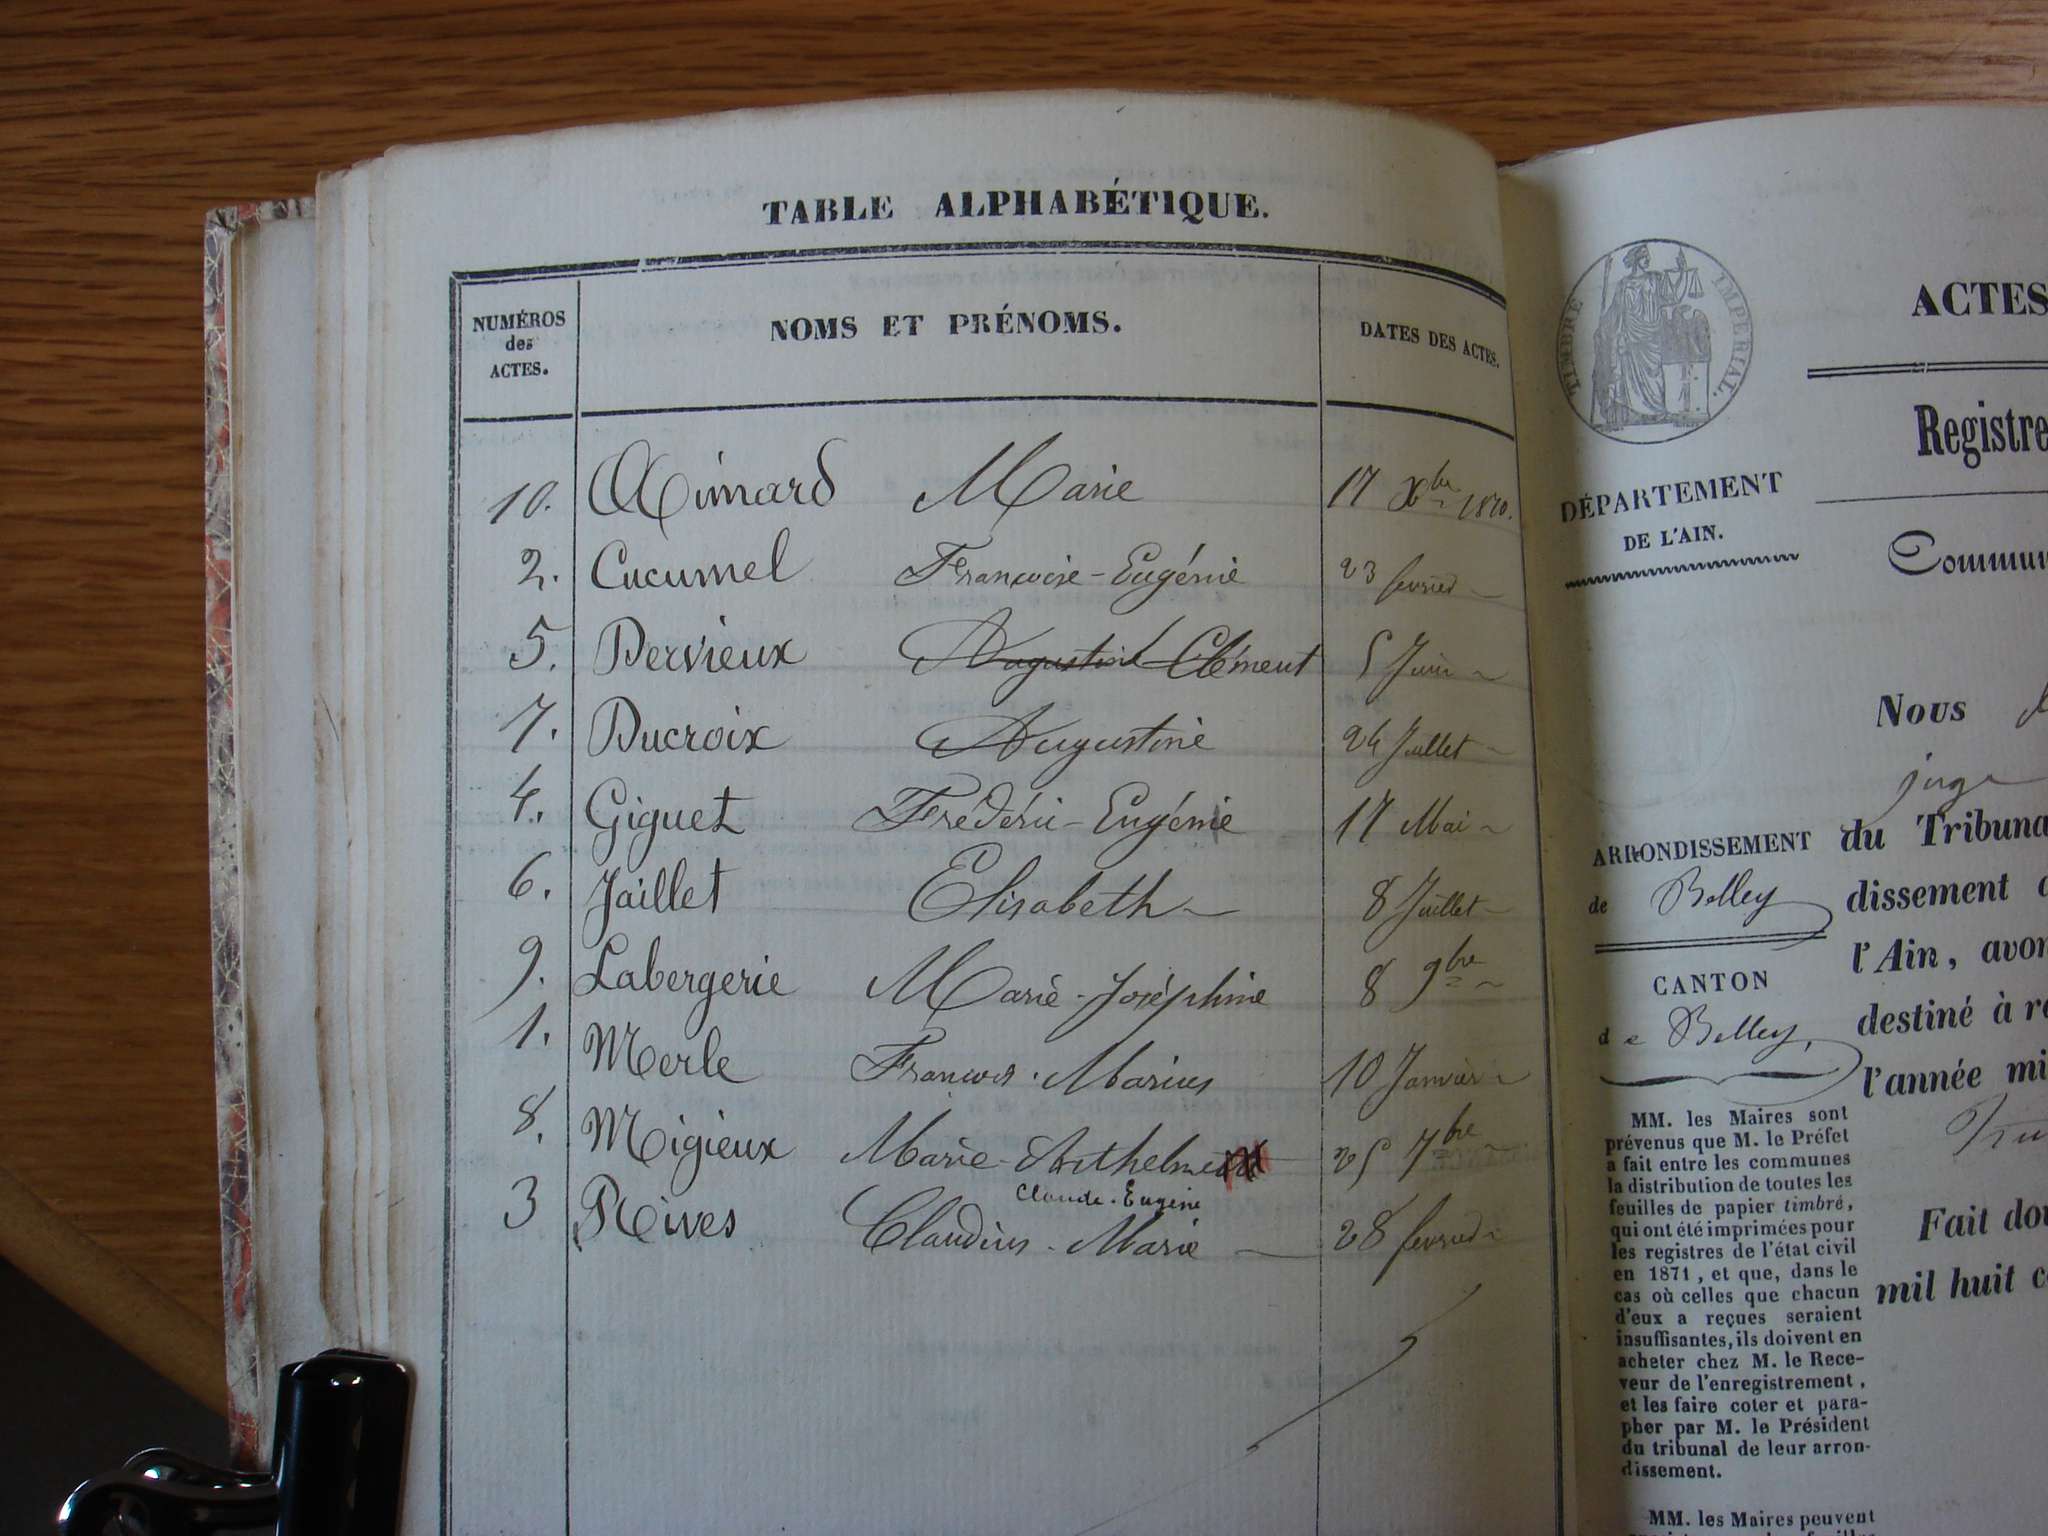 TABLE ALPHABÉTIQUE.
NUMÉROS
des
ACTES.
NOMS ET PRÉNOMS.
DATES DES ACTES.
10. Aimard Marie 17 Xbre 1870.
2. Cucumel Françoise-Eugénie 23 février
5. Dervieux Augustine Clément 5 Juin
7. Ducroix Augustine 24 Juillet
4. Giguet Frédéric-Eugénie 17 Mai
6. Jaillet Elisabeth 8 Juillet
9. Labergerie Marie-Joséphine 8 9bre
1. Merle François-Marius 10 Janvier
8. Migieux Marie-Anthelme 25 7bre
Claude-Eugène
3 Rives Claudius-Marie 28 février
TIMBRE IMPÉRIAL.
DÉPARTEMENT
DE L'AIN.
ARRONDISSEMENT
de Belley
CANTON
de Belley,
MM. les Maires sont
prévenus que M. le Préfet
a fait entre les communes
la distribution de toutes les
feuilles de papier timbré,
qui ont été imprimées pour
les registres de l'état civil
en 1871, et que, dans le
cas où celles que chacun
d'eux a reçues seraient
insuffisantes, ils doivent en
acheter chez M. le Rece-
veur de l'enregistrement,
et les faire coter et para-
pher par M. le Président
du tribunal de leur arron-
dissement.
MM. les Maires peuvent
ACTES
Registre
Commun
Nous
juge
du Tribuna
dissement
l'Ain, avon
destiné à re
l'année mi
Fait dou
mil huit c